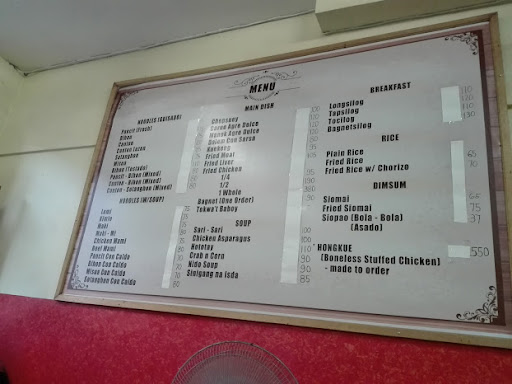 MENU
NOODLES (GUISADO)
Pancit (Fresh)
Bihon
Canton
Sotanghon
Misua
Bihon (Tostado)
Pancit - Bihon (Mixed)
Canton - Bihon (Mixed)
Canton - Sotanghon (Mixed)
NOODLES (W/SOUP)
Lomi
Maki
Maki - Mi
Chicken Mami
Beef Mami
Pancit Con Caldo
Bihon Con Caldo
Misua Con Caldo
Sotanghon Con Caldo
75
70
80
MAIN DISH
Chopsuey
Carne Agre Dulce
Fried Meat
Fried Liver
Fried Chicken
1/4
1/2
1 Whole
Bagnet (One Order)
Tokwa't Baboy
100
90
95
105
SOUP
Sari - Sari
Chicken Asparagus
Hototay
Crab n Corn
Nido Soup
Sinigang na isda
110
90
110
90
90
85
BREAKFAST
Longsilog
Tapsilog
Tocilog
Bagnetsilog
110
120
110
130
RICE
Plain Rice
Fried Rice
Fried Rice w/ Chorizo
70
DIMSUM
Siomai
Fried Siomai
Siopao (Bola - Bola)
(Asado)
75
37
* HONGKUE
(Boneless Stuffed Chicken)
- made to order
550